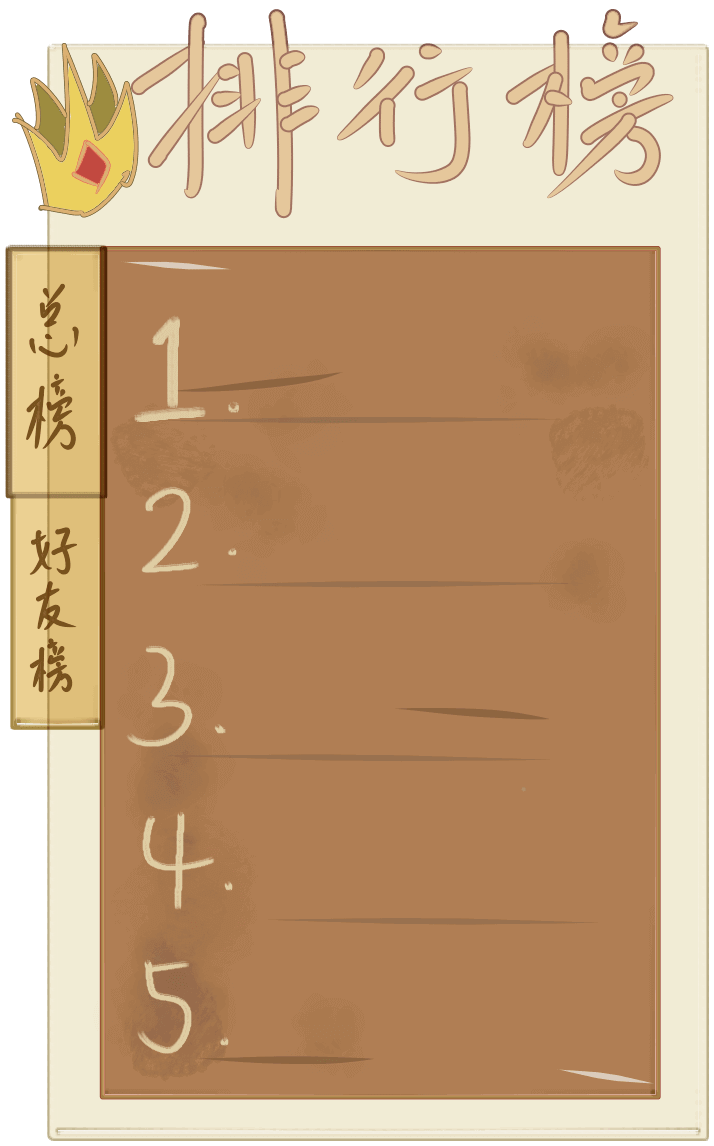 排行榜
总榜
好友榜
1.
2.
3.
4.
5.